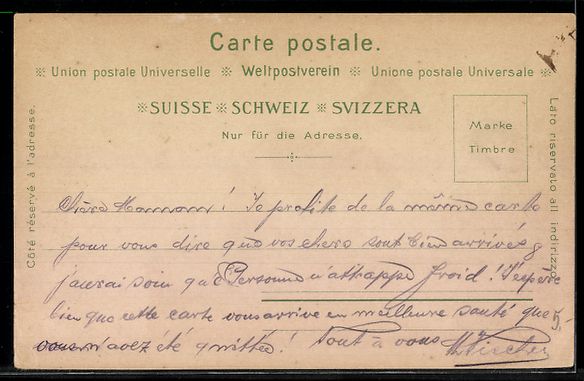 Carte postale.
Union postale Universelle Weltpostverein Unione postale Universale
SUISSE SCHWEIZ SVIZZERA
Nur für die Adresse.
Marke
Timbre
Côté réservé à l'adresse.
Lato riservato all indirizzo.
Chère Maman! Je profite de la même carte
pour vous dire que vos chers sont bien arrivés &
j'aurai soin que Personne n'attrappe froid! J'espère
bien que cette carte vous arrive en meilleure santé que
vous n'avez été quittée! Tout à vous
Fischer
5.-